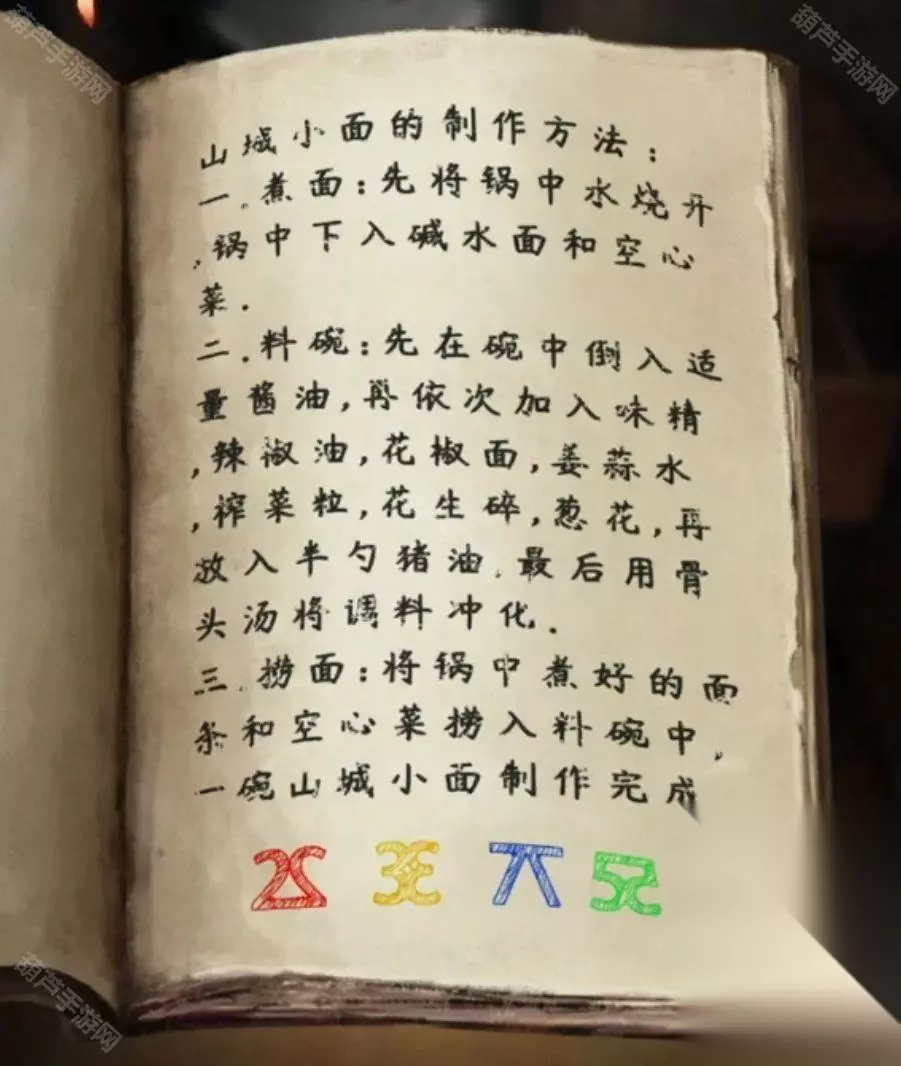 山城小面的制作方法:
一.煮面:先将锅中水烧开
,锅中下入碱水面和空心
菜.
二.料碗:先在碗中倒入适
量酱油,再依次加入味精
,辣椒油,花椒面,姜蒜水
,榨菜粒,花生碎,葱花,再
放入半勺猪油.最后用骨
头汤将调料冲化.
三.捞面:将锅中煮好的面
条和空心菜捞入料碗中,
一碗山城小面制作完成
葫芦手游网
葫芦手游网
葫芦手游网
葫芦手游网